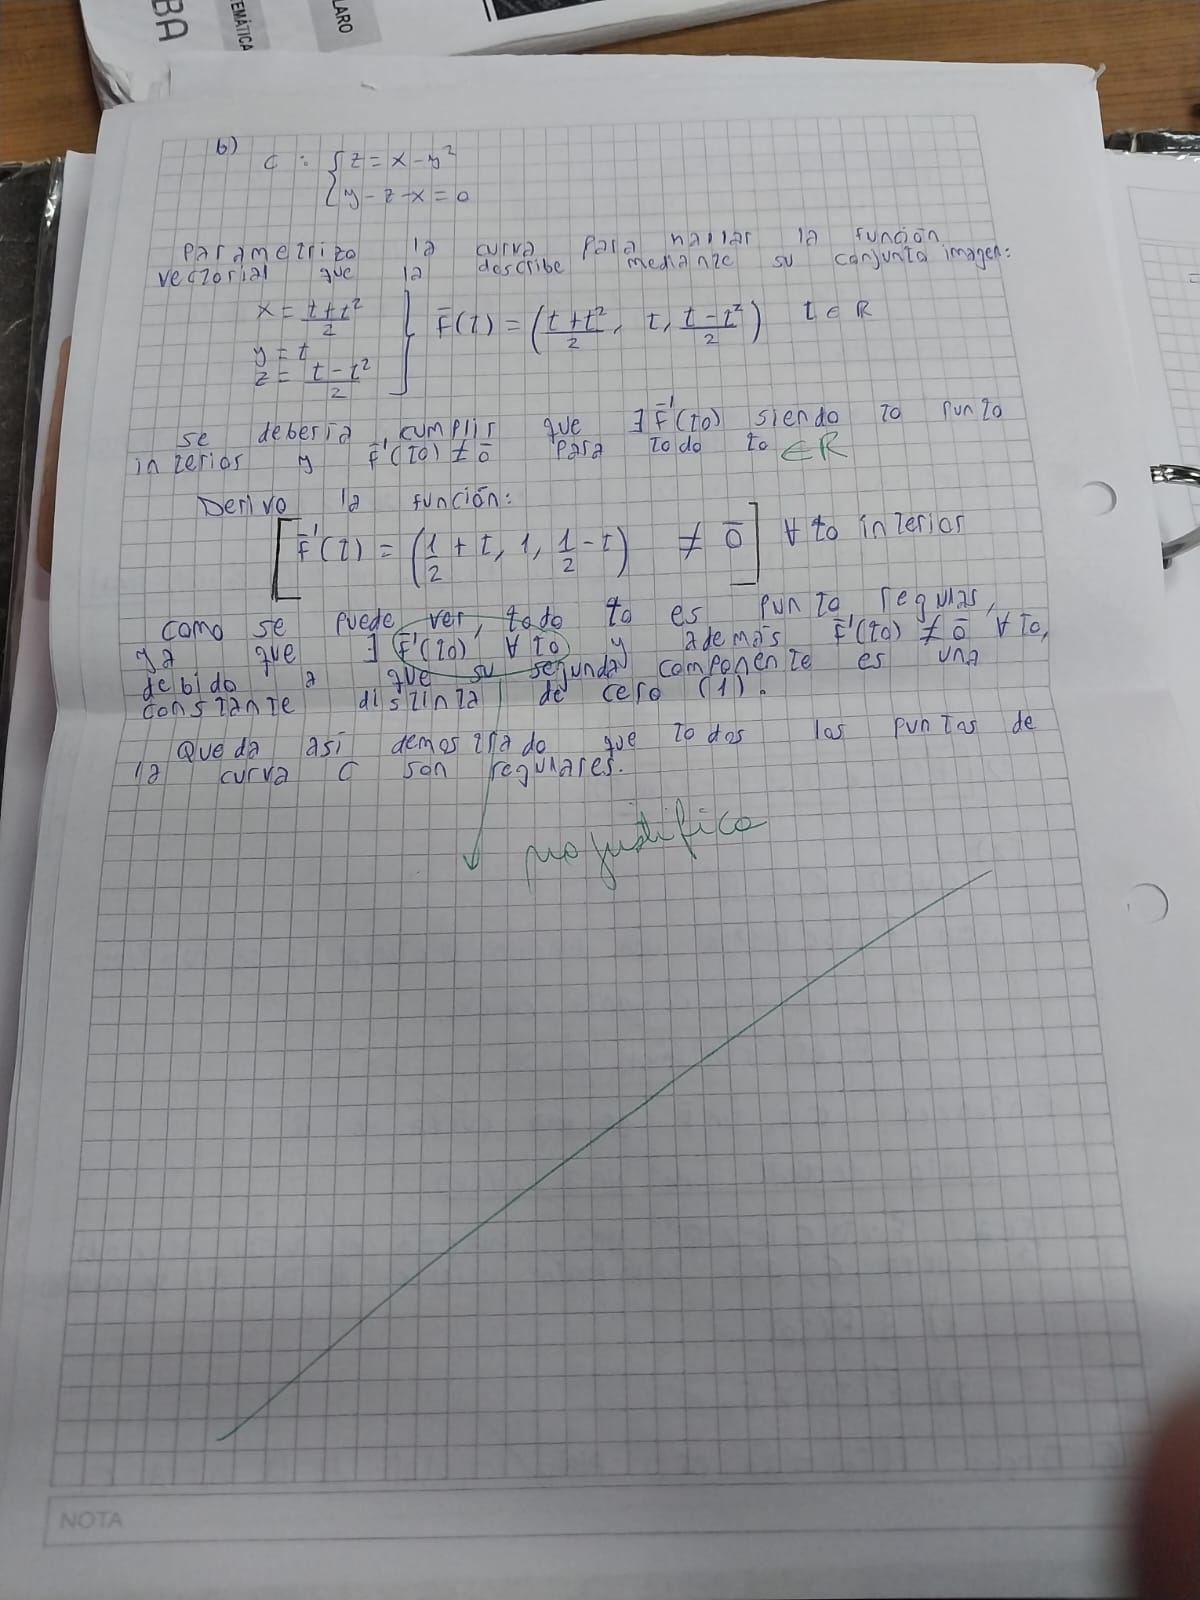 BA
TEMÁTICA
LARO
b) C : { z = x - y²
y - z - x = 0
Parametrizo la curva para hallar la función
vectorial que la describe mediante su conjunto imagen:
x = (t + t²)/2
y = t
z = (t - t²)/2
F̄(t) = ((t + t²)/2, t, (t - t²)/2) t ∈ R
se debería cumplir que ∃ F̄'(t0) siendo t0 punto
interior y F̄'(t0) ≠ 0̄ para todo to ∈ R
Derivo la función:
[F̄'(t) = (1/2 + t, 1, 1/2 - t) ≠ 0̄] ∀ to interior
como se puede ver, todo to es punto regular,
ya que ∃ F̄'(t0) ∀ to y además F̄'(t0) ≠ 0̄ ∀ to,
debido a que su segunda componente es una
constante distinta de cero (1).
Queda así demostrado que todos los puntos de
la curva C son regulares.
no justifica
NOTA